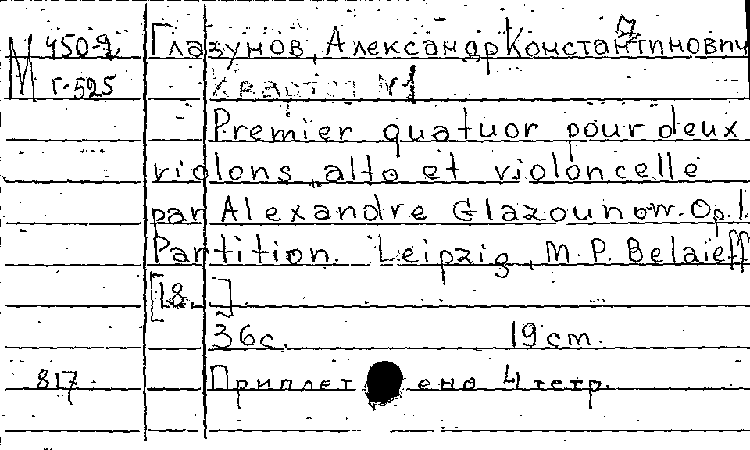 М 450-2 Глазунов, Александр Константинович
Г-525 Квартет №1
Premier quatuor pour deux
violons, alto et violoncelle
par Alexandre Glazounow. Op. 1.
Partition. Leipzig, M. P. Belaïeff
[18. ]
36с. 19 cm.
817 Приплетено 4 тетр.